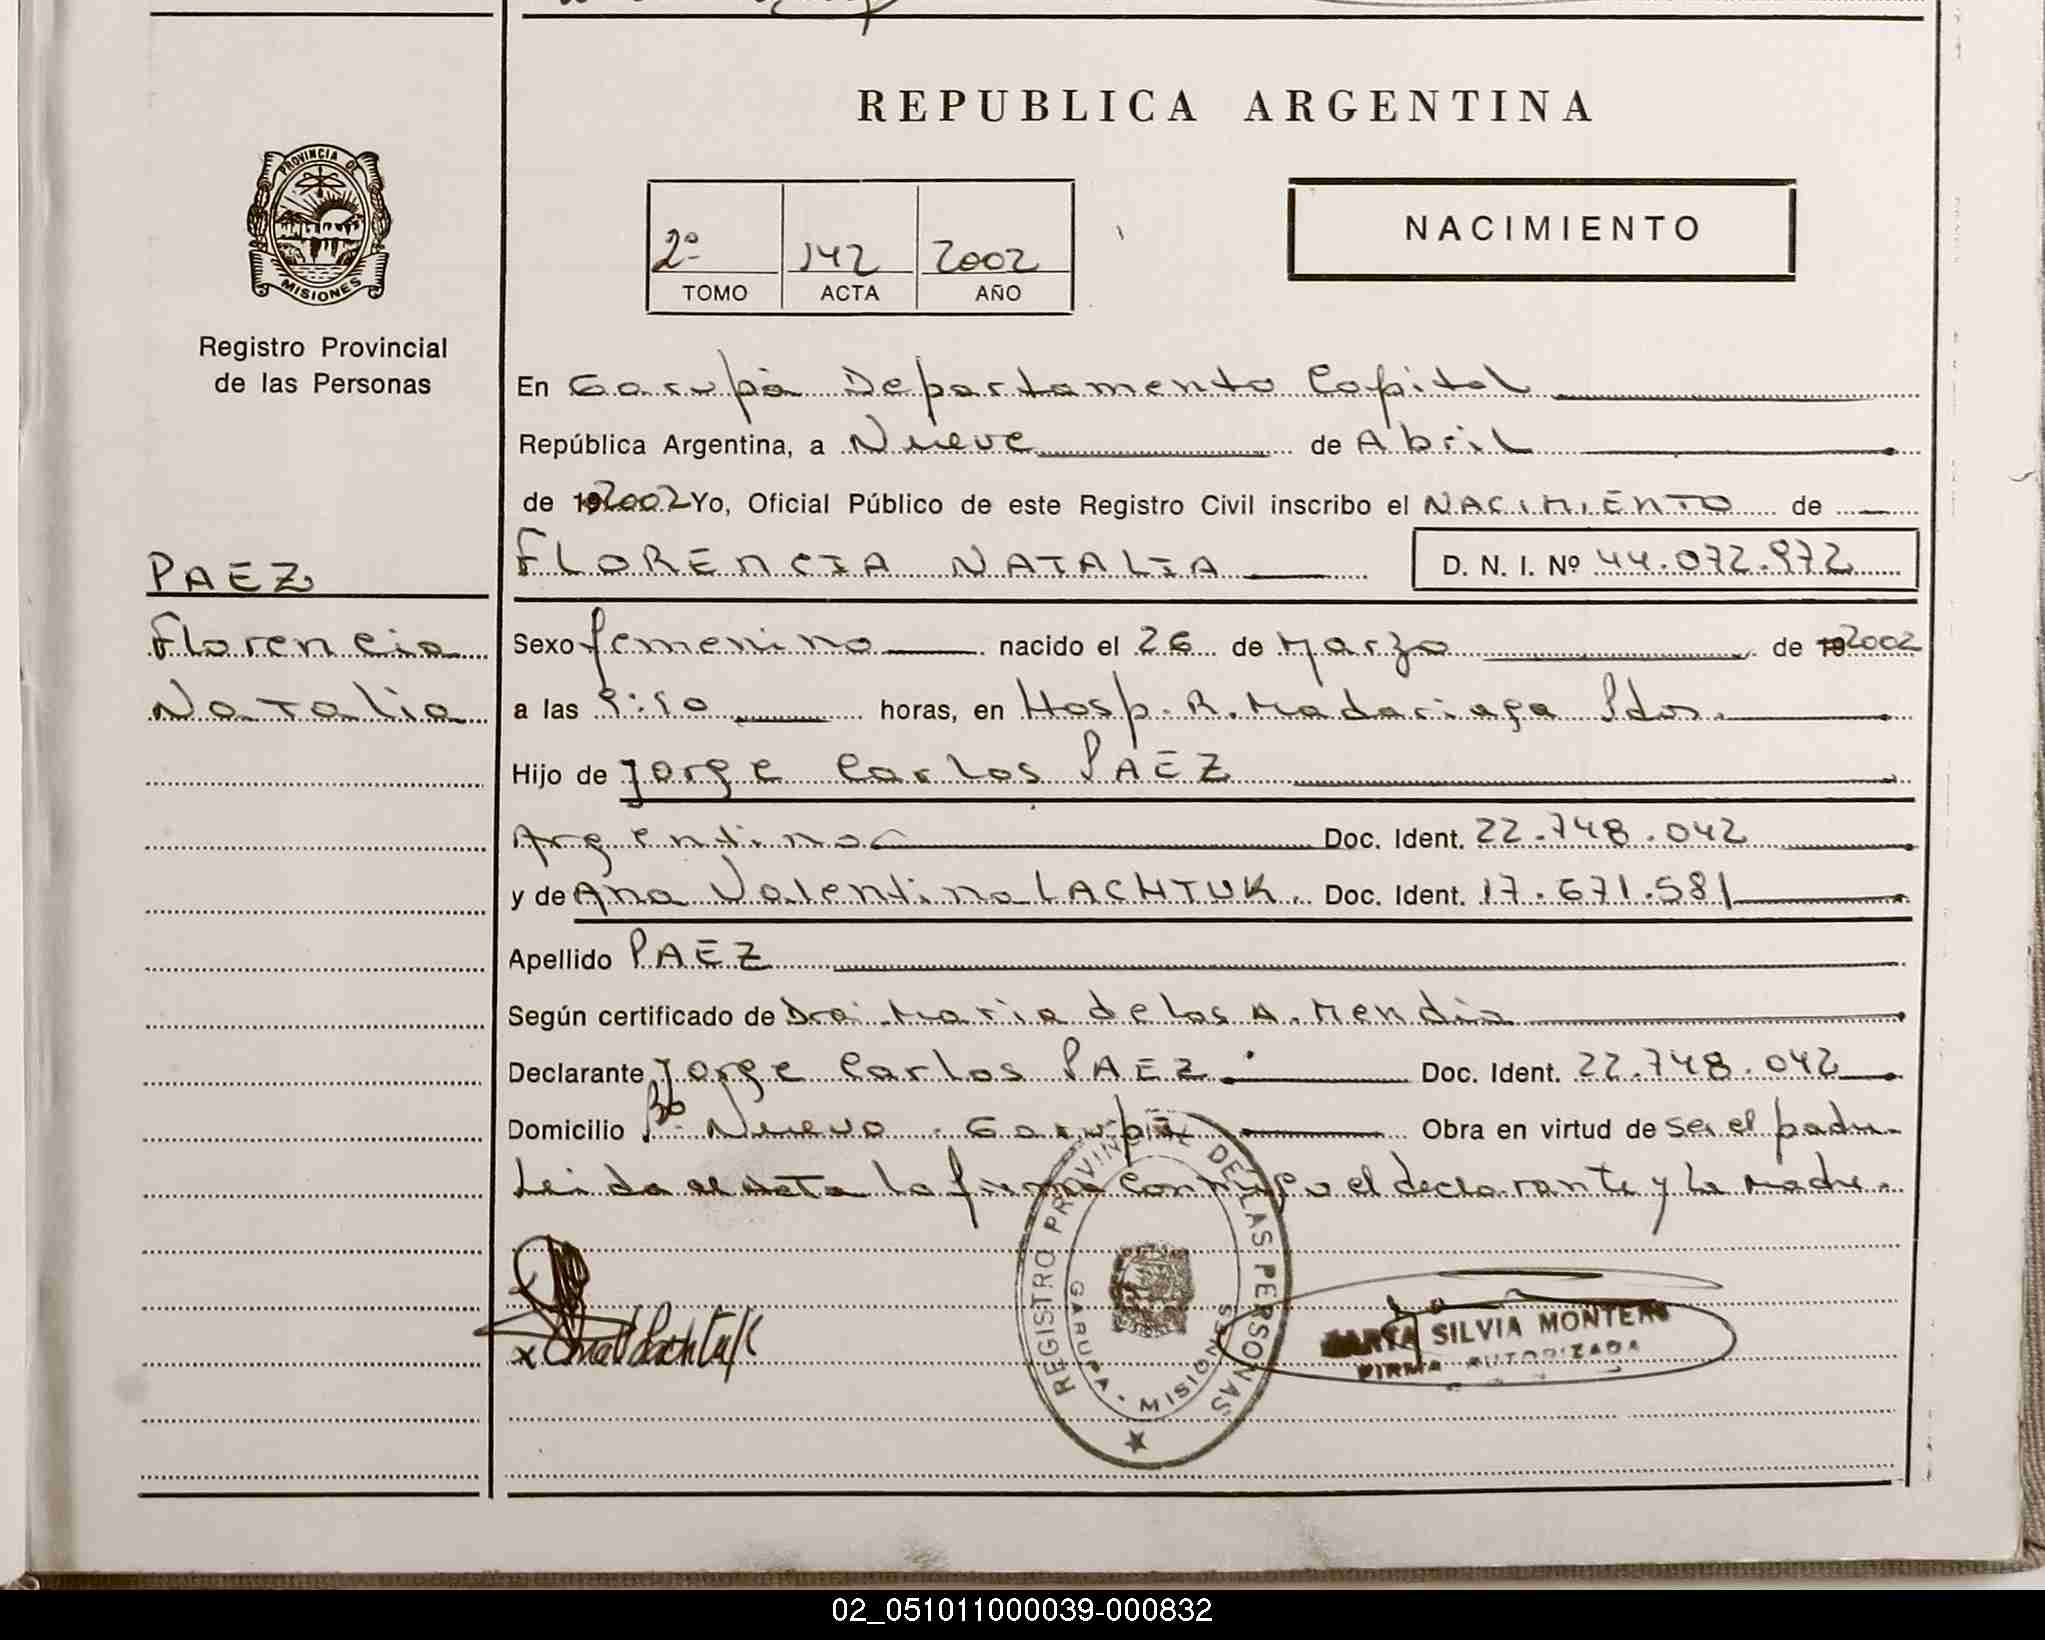 REPUBLICA ARGENTINA
PROVINCIA DE
MISIONES
Registro Provincial
de las Personas
2º 142 2002
TOMO ACTA AÑO
NACIMIENTO
En Garupá Departamento Capital
República Argentina, a Nueve de Abril
de 192002 Yo, Oficial Público de este Registro Civil inscribo el NACIMIENTO de
PAEZ
Florencia
Natalia
FLORENCIA NATALIA D. N. I. Nº 44.072.972
Sexo femenino nacido el 26 de Marzo de 192002
a las 9:50 horas, en Hosp. R. Madariaga Pdas.
Hijo de Jorge Carlos PAEZ
Argentino Doc. Ident. 22.748.042
y de Ana Valentina LACHTUK. Doc. Ident. 17.671.581
Apellido PAEZ
Según certificado de Dra. Maria de los A. Mendia
Declarante Jorge Carlos PAEZ. Doc. Ident. 22.748.042
Domicilio Bº Nuevo. Garupá Obra en virtud de ser el padre
Leida el acta la firma conmigo el declarante y la madre.
REGISTRO PROVINCIAL DE LAS PERSONAS
GARUPA - MISIONES
x Ana V Lachtuk
MARTA SILVIA MONTERO
FIRMA AUTORIZADA
02_051011000039-000832